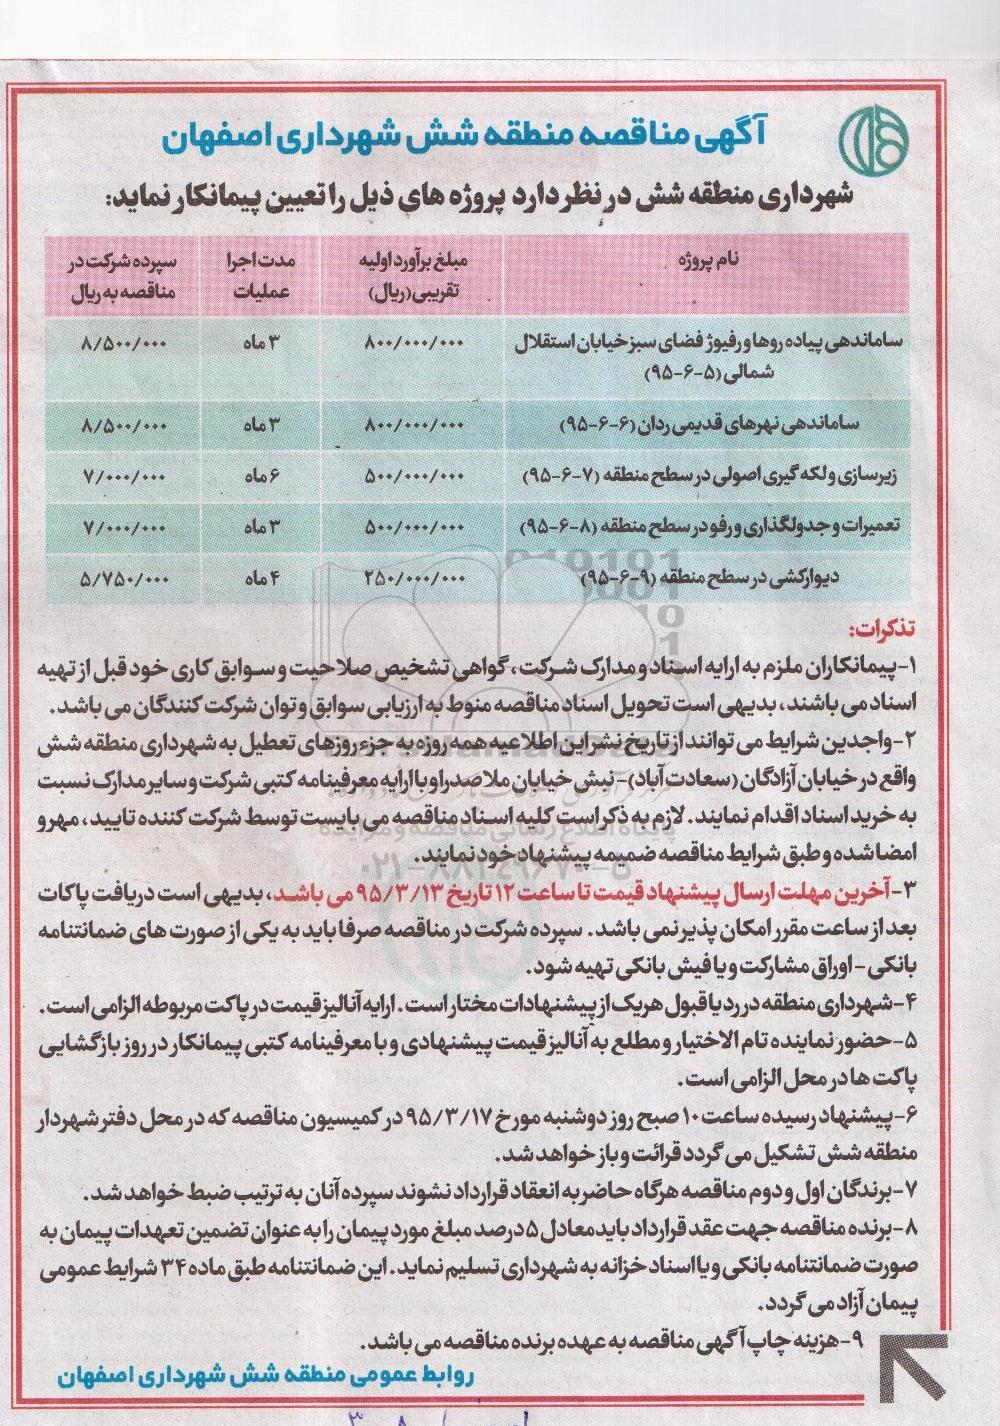 آگهی مناقصه منطقه شش شهرداری اصفهان
شهرداری منطقه شش در نظر دارد پروژه های ذیل را تعیین پیمانکار نماید:
نام پروژه مبلغ برآورد اولیه تقریبی(ریال) مدت اجرا عملیات سپرده شرکت در مناقصه به ریال
ساماندهی پیاده روها و رفیوژ فضای سبز خیابان استقلال ۸۰۰/۰۰۰/۰۰۰ ۳ ماه ۸/۵۰۰/۰۰۰
شمالی (۵-۶-۹۵)
ساماندهی نهرهای قدیمی ردان (۶-۶-۹۵) ۸۰۰/۰۰۰/۰۰۰ ۳ ماه ۸/۵۰۰/۰۰۰
زیرسازی و لکه گیری اصولی در سطح منطقه (۷-۶-۹۵) ۵۰۰/۰۰۰/۰۰۰ ۶ ماه ۷/۰۰۰/۰۰۰
تعمیرات و جدولگذاری و رفو در سطح منطقه (۸-۶-۹۵) ۵۰۰/۰۰۰/۰۰۰ ۳ ماه ۷/۰۰۰/۰۰۰
دیوارکشی در سطح منطقه (۹-۶-۹۵) ۲۵۰/۰۰۰/۰۰۰ ۴ ماه ۵/۷۵۰/۰۰۰
تذکرات:
۱-پیمانکاران ملزم به ارایه اسناد و مدارک شرکت، گواهی تشخیص صلاحیت و سوابق کاری خود قبل از تهیه
اسناد می باشند، بدیهی است تحویل اسناد مناقصه منوط به ارزیابی سوابق و توان شرکت کنندگان می باشد.
۲-واجدین شرایط می توانند از تاریخ نشر این اطلاعیه همه روزه به جزء روزهای تعطیل به شهرداری منطقه شش
واقع در خیابان آزادگان (سعادت آباد)-نبش خیابان ملاصدرا و با ارایه معرفینامه کتبی شرکت و سایر مدارک نسبت
به خرید اسناد اقدام نمایند. لازم به ذکر است کلیه اسناد مناقصه می بایست توسط شرکت کننده تایید، مهر و
امضا شده و طبق شرایط مناقصه ضمیمه پیشنهاد خود نمایند.
۳-آخرین مهلت ارسال پیشنهاد قیمت تا ساعت ۱۲ تاریخ ۹۵/۳/۱۳ می باشد، بدیهی است دریافت پاکات
بعد از ساعت مقرر امکان پذیر نمی باشد. سپرده شرکت در مناقصه صرفا باید به یکی از صورت های ضمانتنامه
بانکی-اوراق مشارکت و یا فیش بانکی تهیه شود.
۴-شهرداری منطقه در رد یا قبول هر یک از پیشنهادات مختار است. ارایه آنالیز قیمت در پاکت مربوطه الزامی است.
۵-حضور نماینده تام الاختیار و مطلع به آنالیز قیمت پیشنهادی و با معرفینامه کتبی پیمانکار در روز بازگشایی
پاکت ها در محل الزامی است.
۶-پیشنهاد رسیده ساعت ۱۰ صبح روز دوشنبه مورخ ۹۵/۳/۱۷ در کمیسیون مناقصه که در محل دفتر شهردار
منطقه شش تشکیل می گردد قرائت و باز خواهد شد.
۷-برندگان اول و دوم مناقصه هرگاه حاضر به انعقاد قرارداد نشوند سپرده آنان به ترتیب ضبط خواهد شد.
۸-برنده مناقصه جهت عقد قرارداد باید معادل ۵ درصد مبلغ مورد پیمان را به عنوان تضمین تعهدات پیمان به
صورت ضمانتنامه بانکی و یا اسناد خزانه به شهرداری تسلیم نماید. این ضمانتنامه طبق ماده ۳۴ شرایط عمومی
پیمان آزاد می گردد.
۹-هزینه چاپ آگهی مناقصه به عهده برنده مناقصه می باشد.
روابط عمومی منطقه شش شهرداری اصفهان